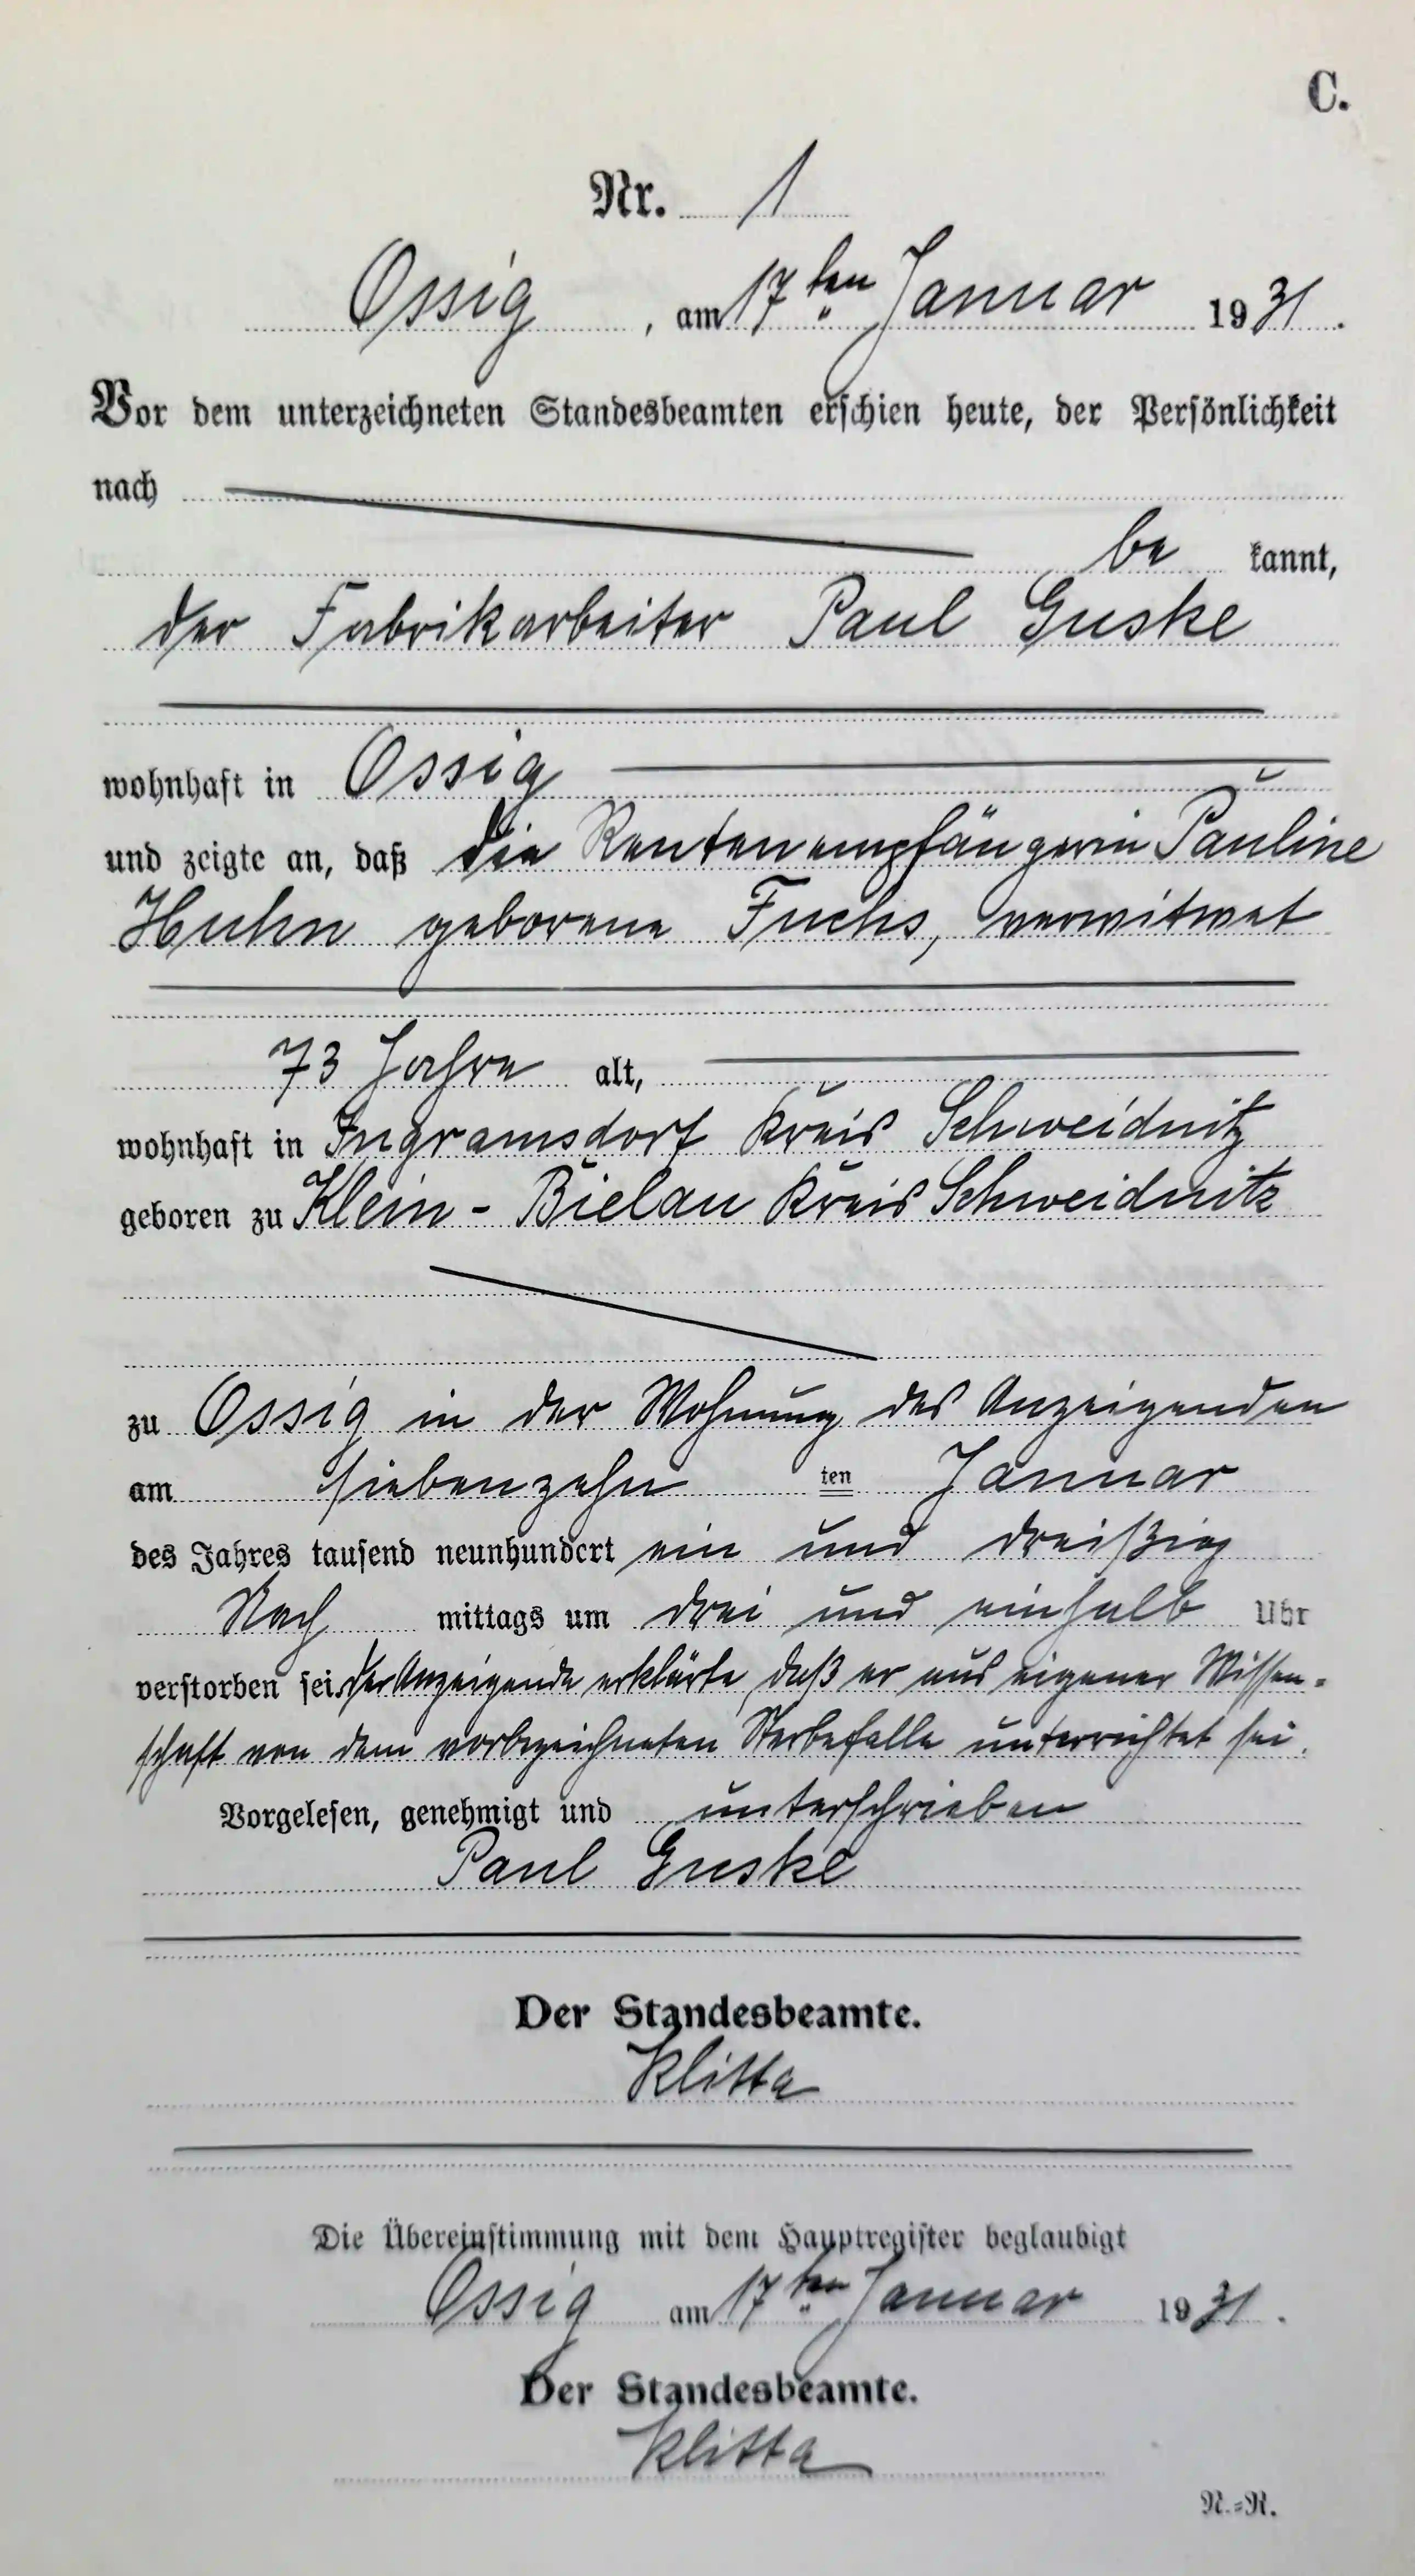 C.
Nr. 1
Ossig, am 17ten Januar 1931.
Vor dem unterzeichneten Standesbeamten erschien heute, der Persönlichkeit
nach
be kannt,
der Fabrikarbeiter Paul Guske
wohnhaft in Ossig
und zeigte an, daß die Rentenempfängerin Pauline
Huhn geborene Fuchs, verwitwet
73 Jahre alt,
wohnhaft in Ingramsdorf Kreis Schweidnitz
geboren zu Klein-Bielau Kreis Schweidnitz
zu Ossig in der Wohnung des Anzeigenden
am siebenzehn ten Januar
des Jahres tausend neunhundert ein und dreißig
Nach mittags um drei und einhalb Uhr
verstorben sei. Der Anzeigende erklärte, daß er aus eigener Wissen-
schaft von dem vorbezeichneten Sterbefalle unterrichtet sei.
Vorgelesen, genehmigt und unterschrieben
Paul Guske
Der Standesbeamte.
Klitta
Die Übereinstimmung mit dem Hauptregister beglaubigt
Ossig am 17ten Januar 1931.
Der Standesbeamte.
Klitta
N.=R.